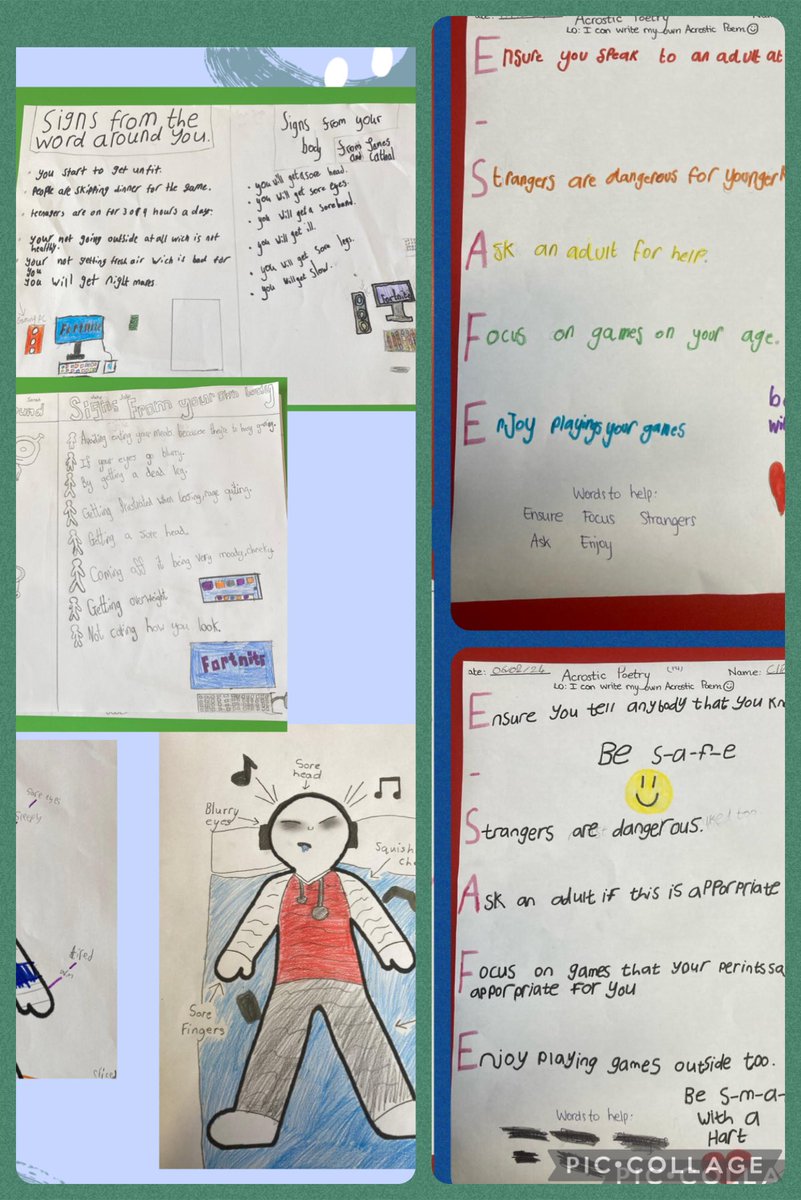 Signs from the
word around you.
• you start to get unfit.
• People are skipping dinner for the game.
• teenagers are on for 3 of 4 hours a day.
• your not going outside at all wich is not
healthy.
• your not getting fresh air wich is bad for
you
you will get night mares
Gaming PC
Fortnite
Signs from your
body
from James
and Cathal
• you will get a sore head.
• you will get sore eyes.
• you will get a sore hand.
• you will get ill.
• you will get sore legs.
• you will get slow.
Fortnite
Signs from your own body
Avoiding eating your meals because they're to busy gaming.
If your eyes go blurry.
By getting a dead leg.
Getting frustrated when loosing, rage quiting.
Getting a sore head.
Coming off it being very moody, cheeky.
Getting overweight
Not caring how you look.
Fortnite
Sore eyes
Sleeply
tired
arm
Sore
head
Blurry
eyes
Squish
Sore
Fingers
Acrostic Poetry
LO: I can write my own Acrostic Poem ☺
Ensure you speak to an adult at
-
Strangers are dangerous for younger
Ask an adult for help.
Focus on games on your age.
Enjoy playings your games
Words to help:
Ensure Focus Strangers
Ask Enjoy
ate: 06/02/24 Acrostic Poetry Name:
LO: I can write my own Acrostic Poem ☺
Ensure you tell anybody that you
Be s-a-f-e
-
Strangers are dangerous.
Ask an adult if this is apporpriate
Focus on games that your perints
apporpriate for you
Enjoy playing games outside too.
Be s-m-a-
with a
Hart
Words to help:
PIC•COLLAGE